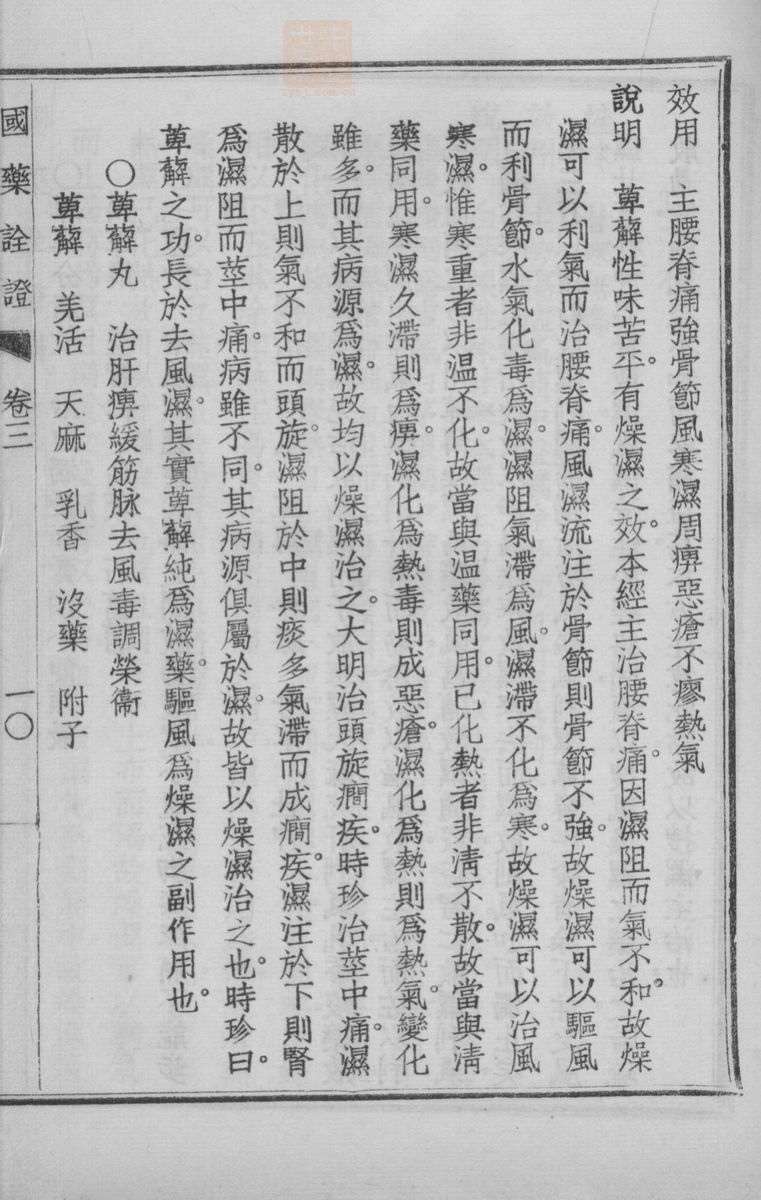 效用　主腰脊痛強骨節風寒濕周痹惡瘡不瘳熱氣
說明　萆薢性味苦平。有燥濕之效。本經主治腰脊痛。因濕阻而氣不和。故燥
濕可以利氣而治腰脊痛。風濕流注於骨節則骨節不強。故燥濕可以驅風
而利骨節。水氣化毒爲濕。濕阻氣滯爲風。濕滯不化爲寒。故燥濕可以治風
寒濕。惟寒重者非温不化。故當與温藥同用。已化熱者非淸不散。故當與淸
藥同用。寒濕久滯則爲痹。濕化爲熱毒則成惡瘡。濕化爲熱則爲熱氣。變化
雖多。而其病源爲濕。故均以燥濕治之。大明治頭旋癎疾。時珍治莖中痛。濕
散於上則氣不和而頭旋。濕阻於中則痰多氣滯而成癎疾。濕注於下則腎
爲濕阻而莖中痛。病雖不同。其病源俱屬於濕。故皆以燥濕治之也。時珍曰。
萆薢之功。長於去風濕。其實萆薢純爲濕藥。驅風爲燥濕之副作用也。
○萆薢丸　治肝痹緩筋脉去風毒調榮衞
萆薢　羌活　天麻　乳香　沒藥　附子
國藥詮證　卷三　一〇